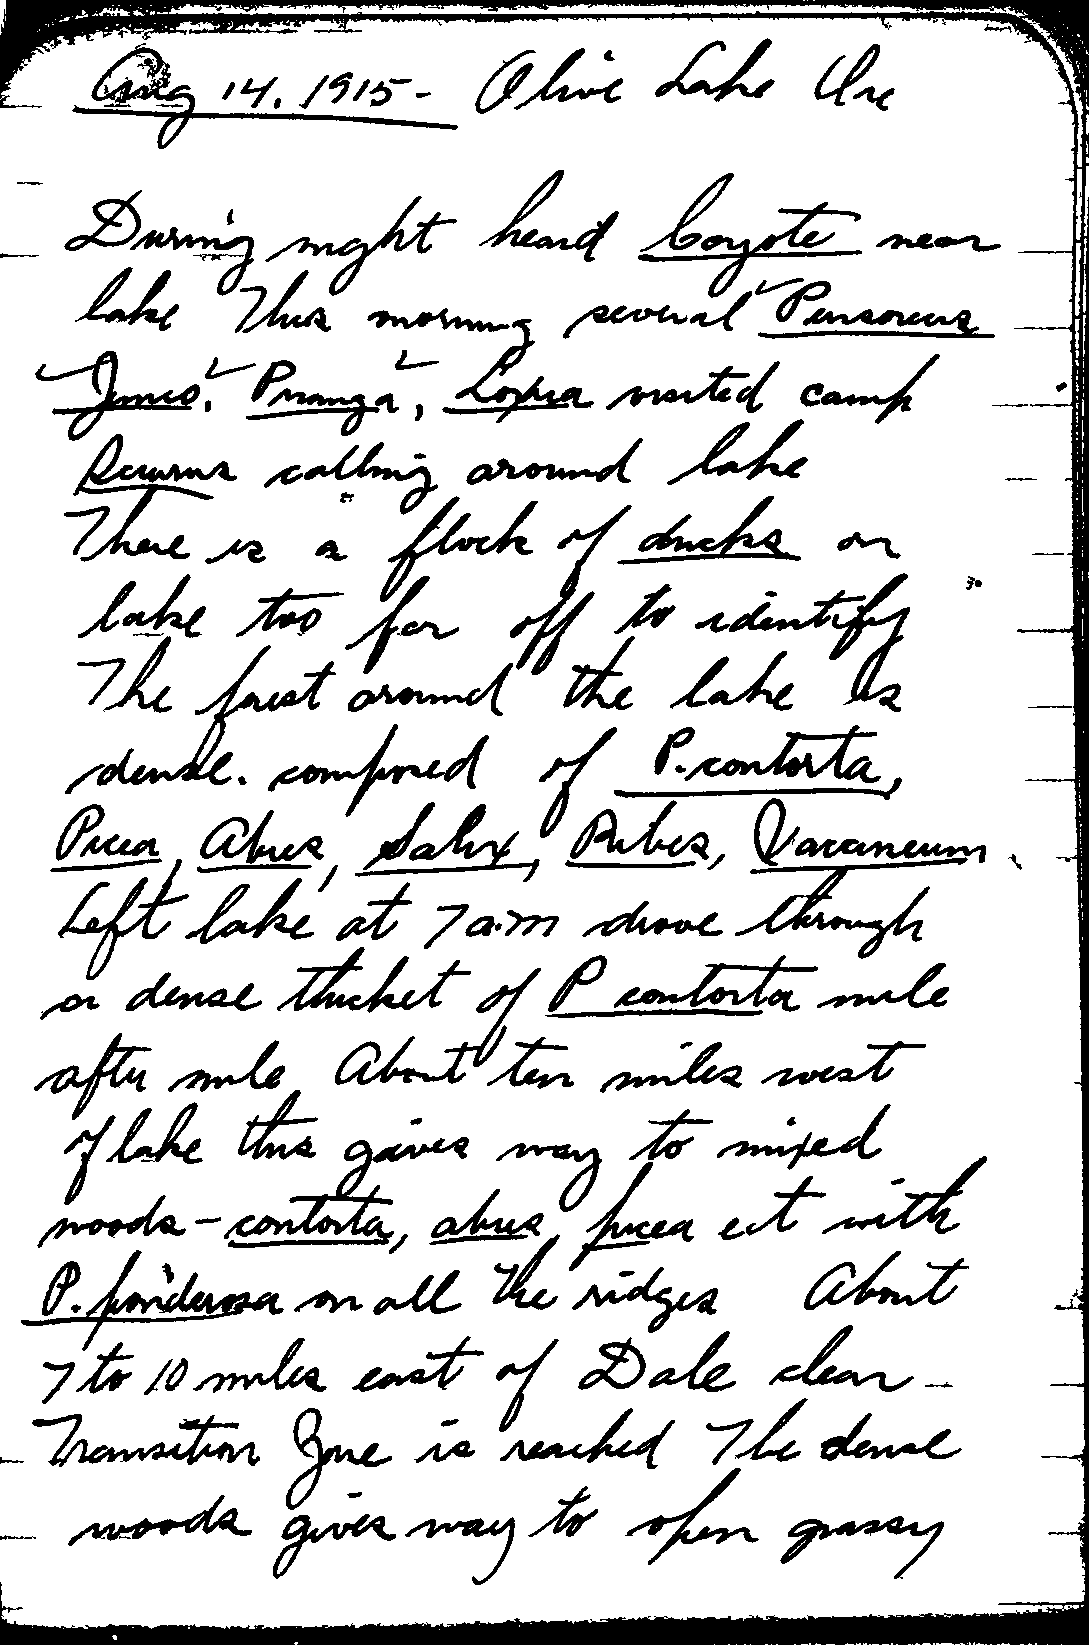 Aug 14, 1915 - Olive Lake Ore
During night heard Coyote near
lake This morning several Perisoreus
Junco, Piranga, Loxia visited camp
Sciurus calling around lake
There is a flock of ducks on
lake too far off to identify
The forest around the lake is
dense. composed of P. contorta,
Picea, Abies, Salix, Ribes, Vaccineum
Left lake at 7 a.m drove through
a dense thicket of P contorta mile
after mile About ten miles west
of lake this gives way to mixed
woods - contorta, abies, picea ect with
P. ponderosa on all the ridges About
7 to 10 miles east of Dale clear
Transition Zone is reached The dense
woods gives way to open grassy